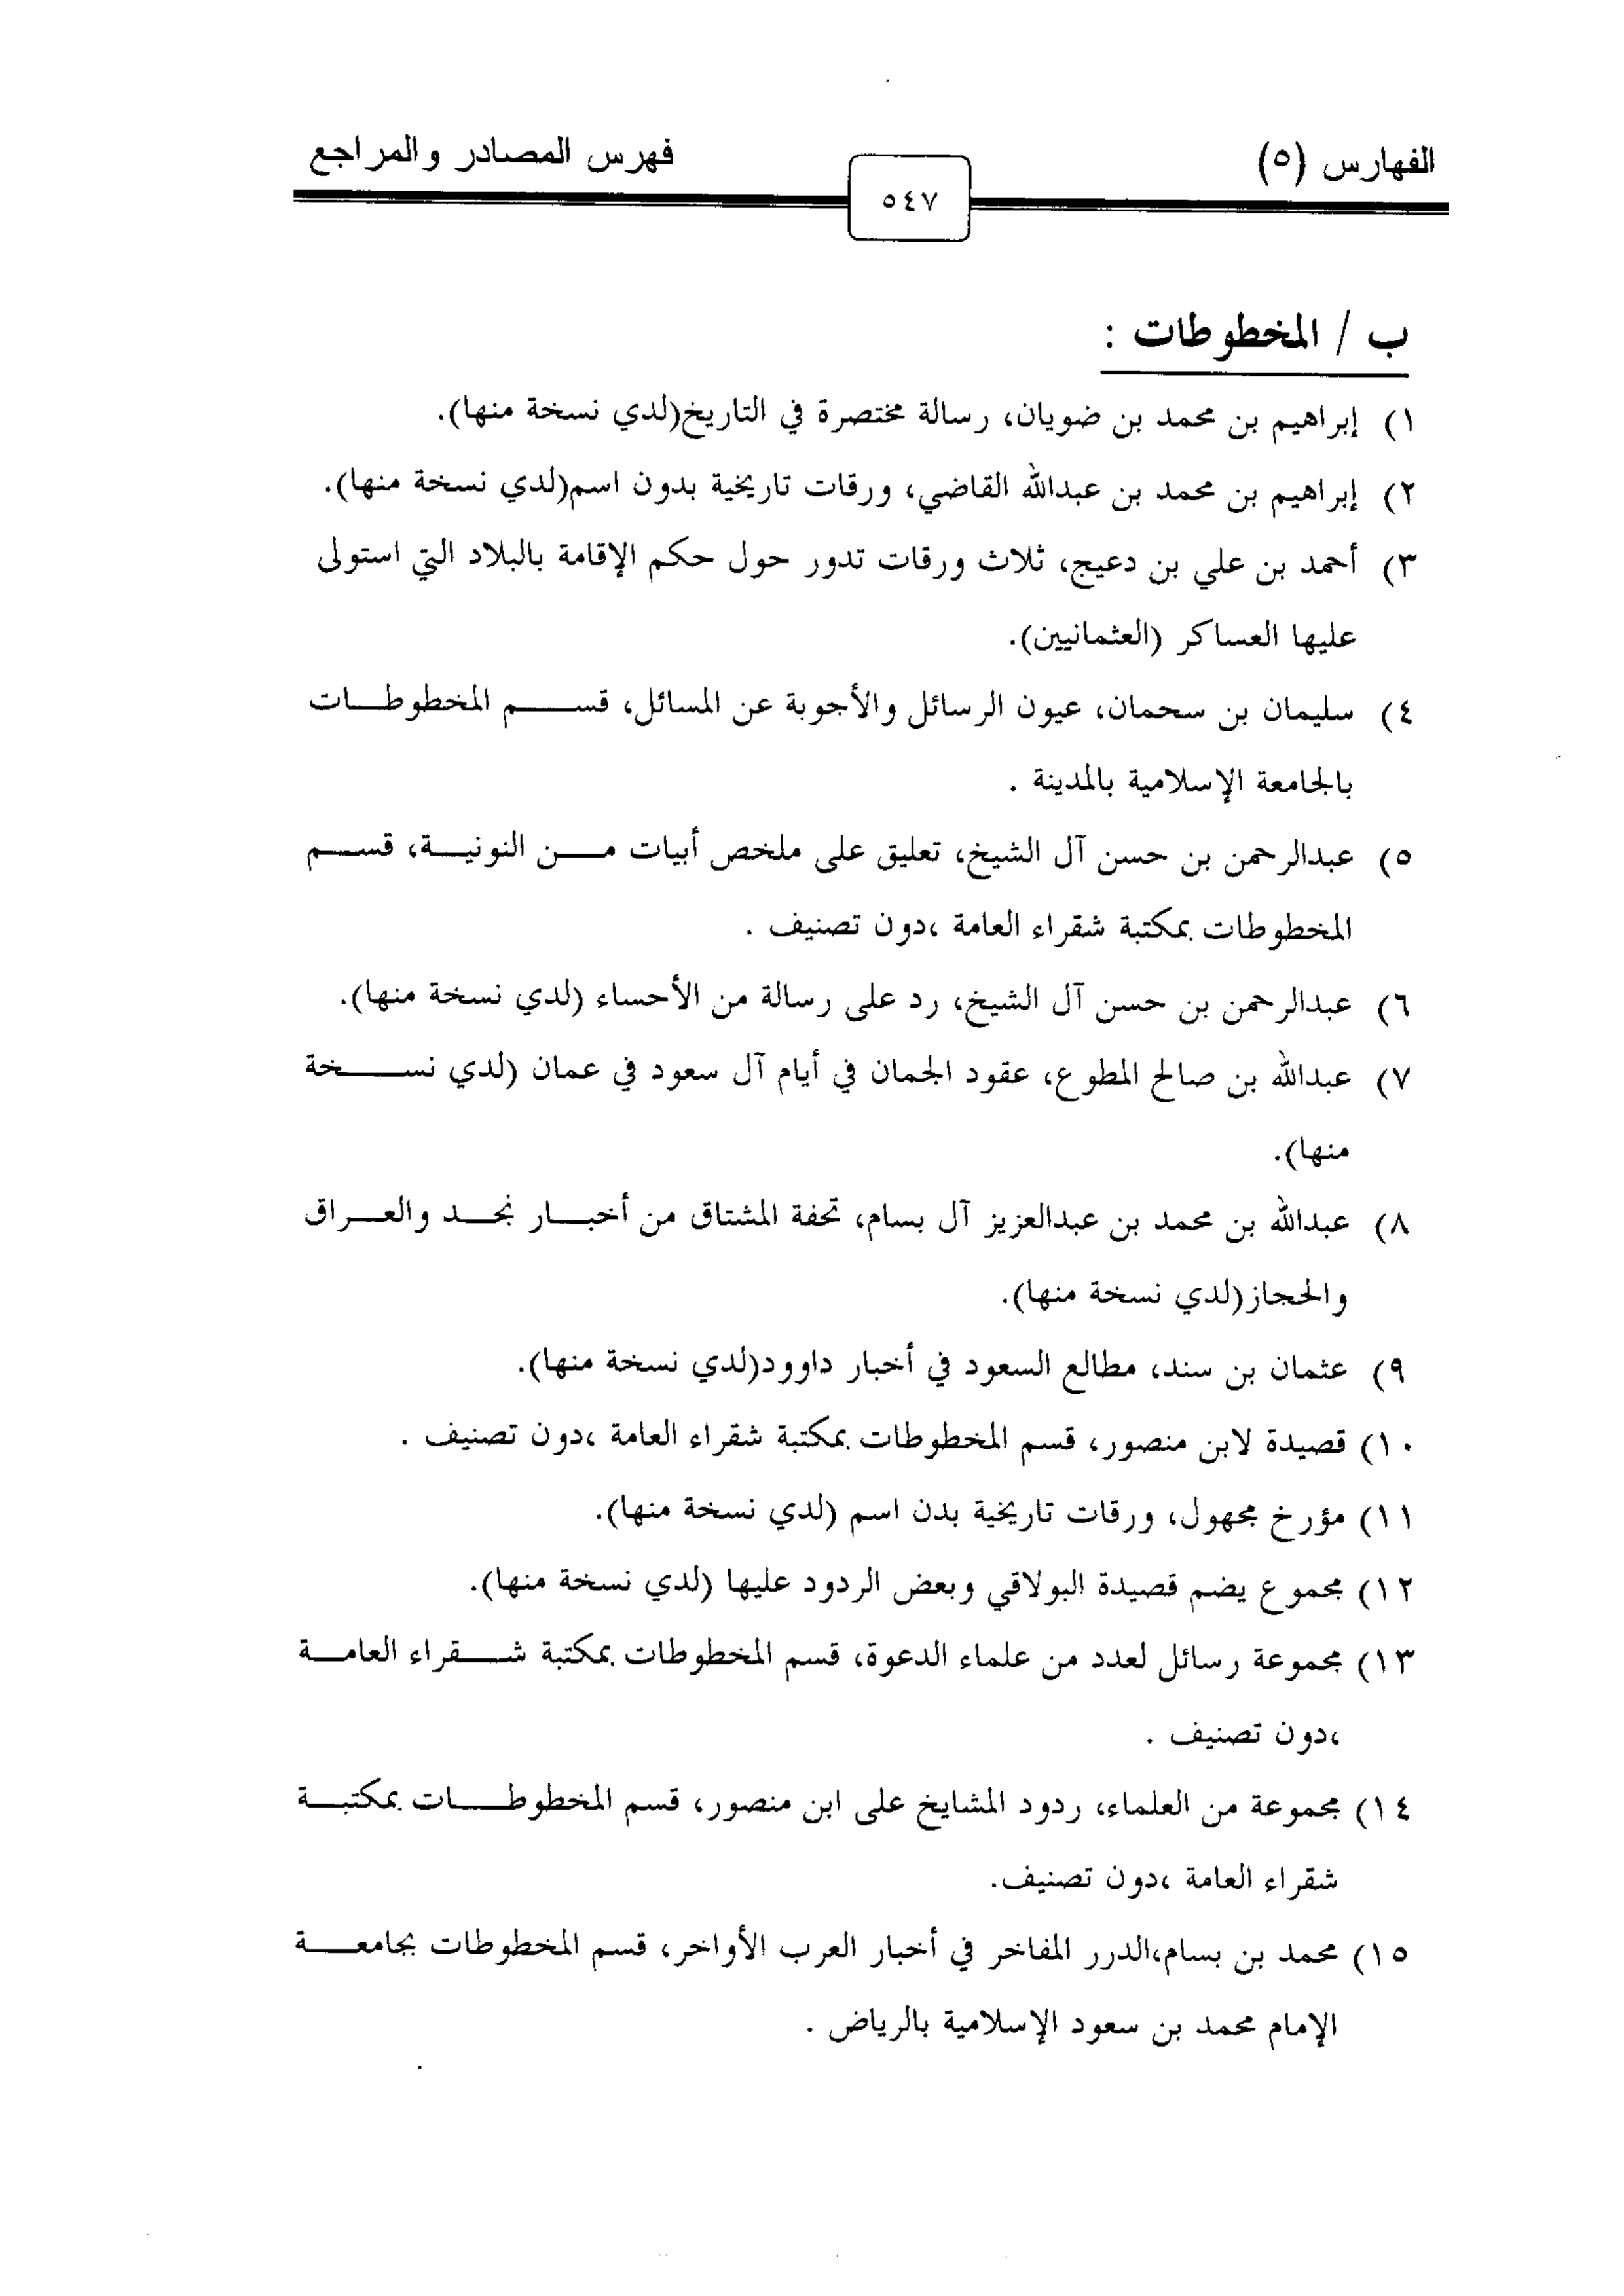 الفهارس (٥)
فهرس المصادر والمراجع
٥٤٧
ب / المخطوطات :
١) إبراهيم بن محمد بن ضويان، رسالة مختصرة في التاريخ(لدي نسخة منها).
٢) إبراهيم بن محمد بن عبدالله القاضي، ورقات تاريخية بدون اسم(لدي نسخة منها).
٣) أحمد بن علي بن دعيج، ثلاث ورقات تدور حول حكم الإقامة بالبلاد التي استولى
عليها العساكر (العثمانيين).
٤) سليمان بن سحمان، عيون الرسائل والأجوبة عن المسائل، قسم المخطوطات
بالجامعة الإسلامية بالمدينة .
٥) عبدالرحمن بن حسن آل الشيخ، تعليق على ملخص أبيات من النونية، قسم
المخطوطات بمكتبة شقراء العامة ،دون تصنيف .
٦) عبدالرحمن بن حسن آل الشيخ، رد على رسالة من الأحساء (لدي نسخة منها).
٧) عبدالله بن صالح المطوع، عقود الجمان في أيام آل سعود في عمان (لدي نسخة
منها).
٨) عبدالله بن محمد بن عبدالعزيز آل بسام، تحفة المشتاق من أخبار نجد والعراق
والحجاز(لدي نسخة منها).
٩) عثمان بن سند، مطالع السعود في أخبار داوود(لدي نسخة منها).
١٠) قصيدة لابن منصور، قسم المخطوطات بمكتبة شقراء العامة ،دون تصنيف .
١١) مؤرخ مجهول، ورقات تاريخية بدن اسم (لدي نسخة منها).
١٢) مجموع يضم قصيدة البولاقي وبعض الردود عليها (لدي نسخة منها).
١٣) مجموعة رسائل لعدد من علماء الدعوة، قسم المخطوطات بمكتبة شقراء العامة
،دون تصنيف .
١٤) مجموعة من العلماء، ردود المشايخ على ابن منصور، قسم المخطوطات بمكتبة
شقراء العامة ،دون تصنيف.
١٥) محمد بن بسام،الدرر المفاخر في أخبار العرب الأواخر، قسم المخطوطات بجامعة
الإمام محمد بن سعود الإسلامية بالرياض .